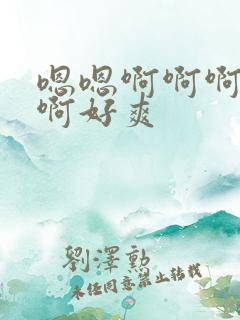 嗯嗯啊啊啊
啊好爽
劉澤勲
未经同意禁止转载